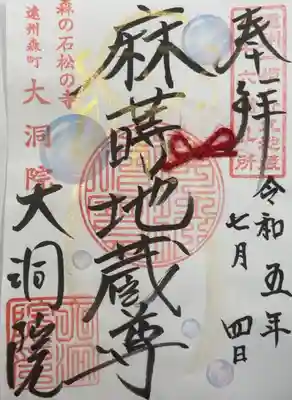 奉拝
令和五年
七月四日
麻蒔地蔵尊
大洞院
森の石松の寺
遠州森町
大洞院